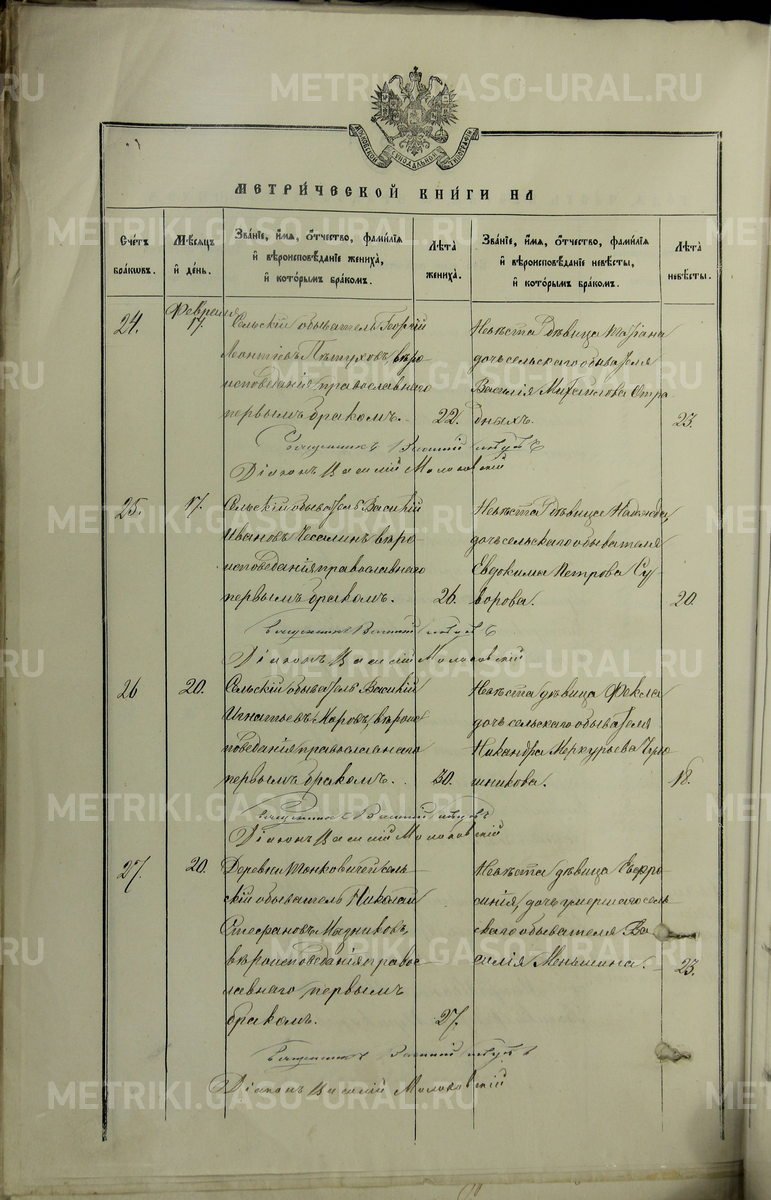 METRIKI.GASO-URAL.RU
МОСКОВСКОЙ СѴНОДАЛЬНОЙ ТИПОГРАФІИ
МЕТРИ́ЧЕСКОЙ КНИ́ГИ НА
Счéтъ бракωвъ.
Мѣсяцъ и день.
Званіе, имя, отчество, фамилія и вѣроисповѣданіе жениха, и которымъ бракомъ.
Лѣта жениха.
Званіе, имя, отчество, фамилія и вѣроисповѣданіе невѣсты, и которымъ бракомъ.
Лѣта невѣсты.
Февраля
24. 17. Сельскій обыватель Георгій
Леонтіевъ Пѣтуховъ, вѣро
исповѣданія православнаго
первымъ бракомъ. 22.
Невѣста дѣвица Татіана
дочь сельскаго обывателя
Василія Михаилова Отра
дныхъ. 23.
Священникъ
Діаконъ Василій Молоковскій
25. 17. Сельскій обыватель Василій
Ивановъ Чесалинъ вѣро
исповѣданія православнаго
первымъ бракомъ. 26.
Невѣста дѣвица Надежда,
дочь сельскаго обывателя
Евдокима Петрова Су
ворова. 20.
Священникъ
Діаконъ Василій Молоковскій
26 20. Сельскій обыватель Василій
Игнатьевъ вѣроис
повѣданія православнаго
первымъ бракомъ. 30.
Невѣста дѣвица Фекла
дочь сельскаго обывателя
Никандра Меркурьева
шникова. 18.
Священникъ
Діаконъ Василій Молоковскій
27. 20. Деревни сель
скій обыватель Николай
Стефановъ Мадниковъ,
вѣроисповѣданія правос
лавнаго первымъ
бракомъ. 27.
Невѣста дѣвица Евфро
синія, дочь умершаго сель
скаго обывателя Ва
силія Меншина. 23.
Священникъ
Діаконъ Василій Молоковскій